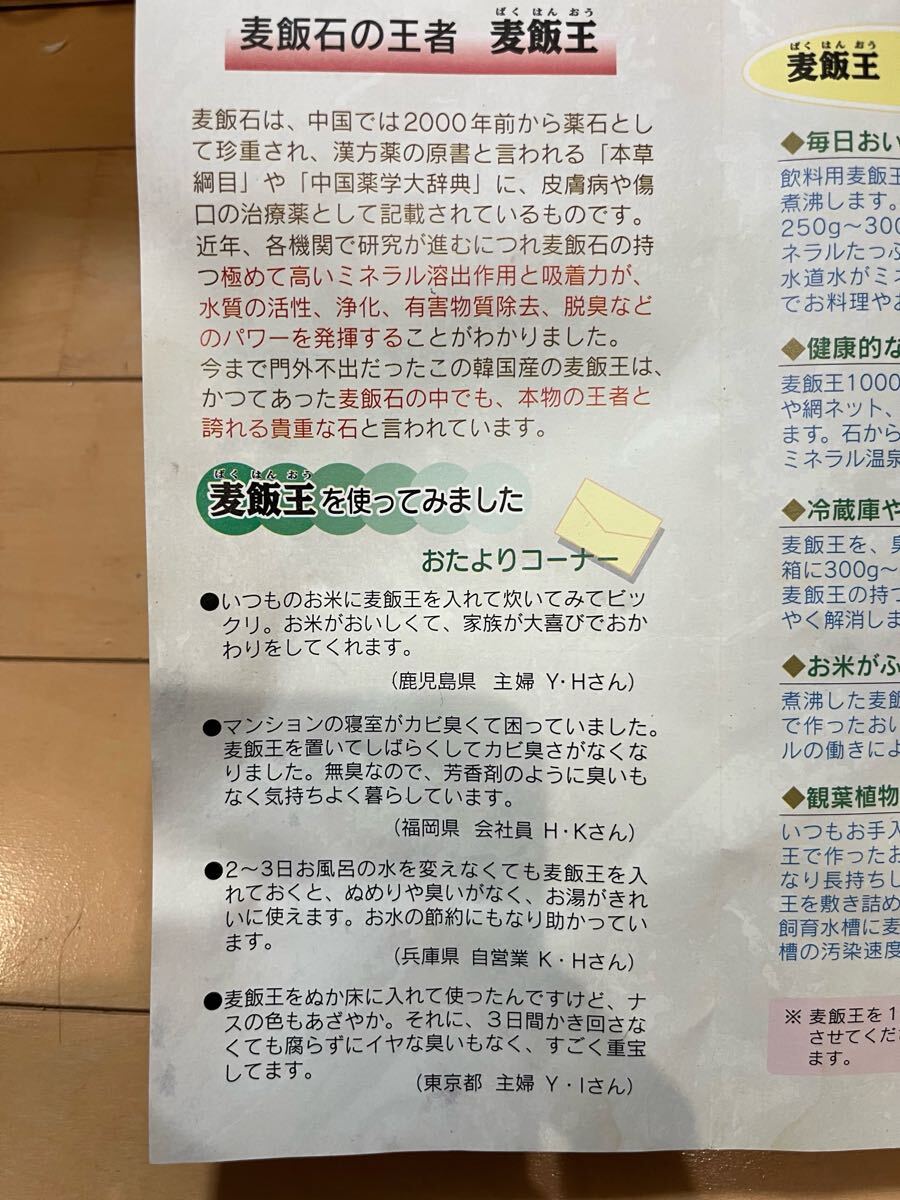 ばくはんおう
麦飯石の王者 麦飯王
麦飯石は、中国では2000年前から薬石とし
て珍重され、漢方薬の原書と言われる「本草
綱目」や「中国薬学大辞典」に、皮膚病や傷
口の治療薬として記載されているものです。
近年、各機関で研究が進むにつれ麦飯石の持
つ極めて高いミネラル溶出作用と吸着力が、
水質の活性、浄化、有害物質除去、脱臭など
のパワーを発揮することがわかりました。
今まで門外不出だったこの韓国産の麦飯王は、
かつてあった麦飯石の中でも、本物の王者と
誇れる貴重な石と言われています。
ばくはんおう
麦飯王を使ってみました
おたよりコーナー
●いつものお米に麦飯王を入れて炊いてみてビッ
クリ。お米がおいしくて、家族が大喜びでおか
わりをしてくれます。
(鹿児島県 主婦 Y・Hさん)
●マンションの寝室がカビ臭くて困っていました。
麦飯王を置いてしばらくしてカビ臭さがなくな
りました。無臭なので、芳香剤のように臭いも
なく気持ちよく暮らしています。
(福岡県 会社員 H・Kさん)
●2～3日お風呂の水を変えなくても麦飯王を入
れておくと、ぬめりや臭いがなく、お湯がきれ
いに使えます。お水の節約にもなり助かってい
ます。
(兵庫県 自営業 K・Hさん)
●麦飯王をぬか床に入れて使ったんですけど、ナ
スの色もあざやか。それに、3日間かき回さな
くても腐らずにイヤな臭いもなく、すごく重宝
してます。
(東京都 主婦 Y・Iさん)
ばくはんおう
麦飯王
◆毎日おい
飲料用麦飯王
煮沸します。
250g～300
ネラルたっぷ
水道水がミネ
でお料理やお
◆健康的な
麦飯王1000
や網ネット、
ます。石から
ミネラル温泉
◆冷蔵庫や
麦飯王を、臭
箱に300g～
麦飯王の持つ
やく解消しま
◆お米がふ
煮沸した麦飯
で作ったおい
ルの働きによ
◆観葉植物
いつもお手入
王で作ったお
なり長持ちし
王を敷き詰め
飼育水槽に麦
槽の汚染速度
※ 麦飯王を1
させてくださ
ます。